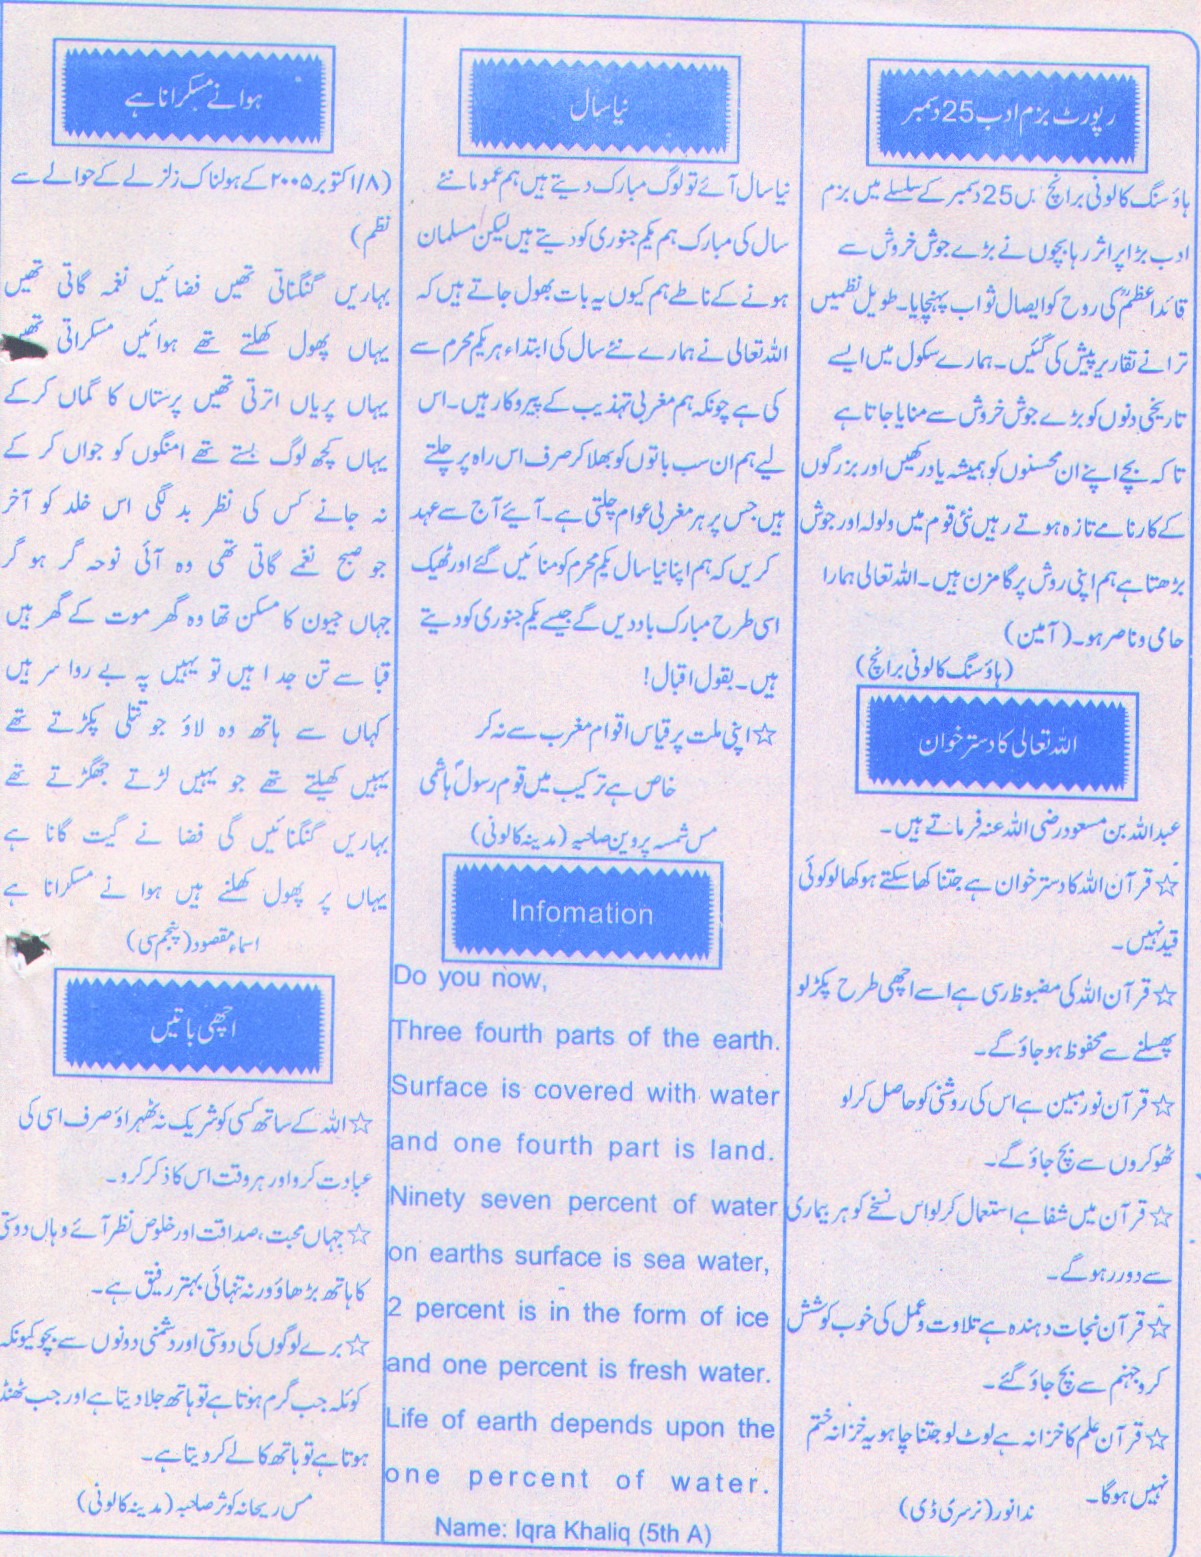 رپورٹ بزم ادب 25 دسمبر
ہاؤسنگ کالونی برانچ میں 25 دسمبر کے سلسلے میں بزم
ادب بڑا پر اثر رہا بچوں نے بڑے جوش خروش سے
قائد اعظمؒ کی روح کو ایصال ثواب پہنچایا۔ طویل نظمیں
ترانے تقاریر پیش کی گئیں۔ ہمارے سکول میں ایسے
تاریخی دنوں کو بڑے جوش خروش سے منایا جاتا ہے
تا کہ بچے اپنے ان محسنوں کو ہمیشہ یاد رکھیں اور بزرگوں
کے کارنامے تازہ ہوتے رہیں نئی قوم میں ولولہ اور جوش
بڑھتا ہے ہم اپنی روش پر گامزن ہیں۔ اللہ تعالی ہمارا
حامی و ناصر ہو۔ (آمین)
(ہاؤسنگ کالونی برانچ)
اللہ تعالی کا دستر خوان
عبد اللہ بن مسعود رضی اللہ عنہ فرماتے ہیں۔
☆ قرآن اللہ کا دستر خوان ہے جتنا کھا سکتے ہو کھا لو کوئی
قید نہیں۔
☆ قرآن اللہ کی مضبوط رسی ہے اسے اچھی طرح پکڑ لو
پھسلنے سے محفوظ ہو جاؤ گے۔
☆ قرآن نور مبین ہے اس کی روشنی کو حاصل کر لو
ٹھوکروں سے بچ جاؤ گے۔
☆ قرآن میں شفا ہے استعمال کر لو اس نسخے کو ہر بیماری
سے دور رہو گے۔
☆ قرآن نجات دہندہ ہے تلاوت و عمل کی خوب کوشش
کرو جہنم سے بچ جاؤ گئے۔
☆ قرآن علم کا خزانہ ہے لوٹ لو جتنا چاہو یہ خزانہ ختم
نہیں ہوگا۔
ندا نور (نرسری ڈی)
نیا سال
نیا سال آئے تو لوگ مبارک دیتے ہیں ہم عموما نئے
سال کی مبارک ہم یکم جنوری کو دیتے ہیں لیکن مسلمان
ہونے کے ناطے ہم کیوں یہ بات بھول جاتے ہیں کہ
اللہ تعالی نے ہمارے نئے سال کی ابتداء ہر یکم محرم سے
کی ہے چونکہ ہم مغربی تہذیب کے پیروکار ہیں۔ اس
لیے ہم ان سب باتوں کو بھلا کر صرف اس راہ پر چلتے
ہیں جس پر ہر مغربی عوام چلتی ہے۔ آیئے آج سے عہد
کریں کہ ہم اپنا نیا سال یکم محرم کو منائیں گئے اور ٹھیک
اسی طرح مبارک باد دیں گے جیسے یکم جنوری کو دیتے
ہیں۔ بقول اقبال!
☆ اپنی ملت پر قیاس اقوام مغرب سے نہ کر
خاص ہے ترکیب میں قوم رسول ہاشمی
مس شمسہ پروین صاحبہ (مدینہ کالونی)
Infomation
Do you now,
Three fourth parts of the earth.
Surface is covered with water
and one fourth part is land.
Ninety seven percent of water
on earths surface is sea water,
2 percent is in the form of ice
and one percent is fresh water.
Life of earth depends upon the
one percent of water.
Name: Iqra Khaliq (5th A)
ہوا نے مسکرانا ہے
(۸/اکتوبر ۲۰۰۵ کے ہولناک زلزلے کے حوالے سے
نظم)
بہاریں گنگناتی تھیں فضائیں نغمہ گاتی تھیں
یہاں پھول کھلتے تھے ہوائیں مسکراتی تھیں
یہاں پریاں اترتی تھیں پرستاں کا گماں کرکے
یہاں کچھ لوگ بستے تھے امنگوں کو جواں کر کے
نہ جانے کس کی نظر بد لگی اس خلد کو آخر
جو صبح نغمے گاتی تھی وہ آئی نوحہ گر ہو گر
جہاں جیون کا مسکن تھا وہ گھر موت کے گھر ہیں
قبا سے تن جدا ہیں تو یہیں پہ بے ردا سر ہیں
کہاں سے ہاتھ وہ لاؤ جو تتلی پکڑتے تھے
یہیں کھیلتے تھے جو یہیں لڑتے جھگڑتے تھے
بہاریں گنگنائیں گی فضا نے گیت گانا ہے
یہاں پر پھول کھلنے ہیں ہوا نے مسکرانا ہے
اسماء مقصود (پنجم سی)
اچھی باتیں
☆ اللہ کے ساتھ کسی کو شریک نہ ٹھہراؤ صرف اسی کی
عبادت کرو اور ہر وقت اس کا ذکر کرو۔
☆ جہاں محبت، صداقت اور خلوص نظر آئے وہاں دوستی
کا ہاتھ بڑھاؤ ورنہ تنہائی بہتر رفیق ہے۔
☆ برے لوگوں کی دوستی اور دشمنی دونوں سے بچو کیونکہ
کوئلہ جب گرم ہوتا ہے تو ہاتھ جلا دیتا ہے اور جب ٹھنڈ
ہوتا ہے تو ہاتھ کالے کر دیتا ہے۔
مس ریحانہ کوثر صاحبہ (مدینہ کالونی)